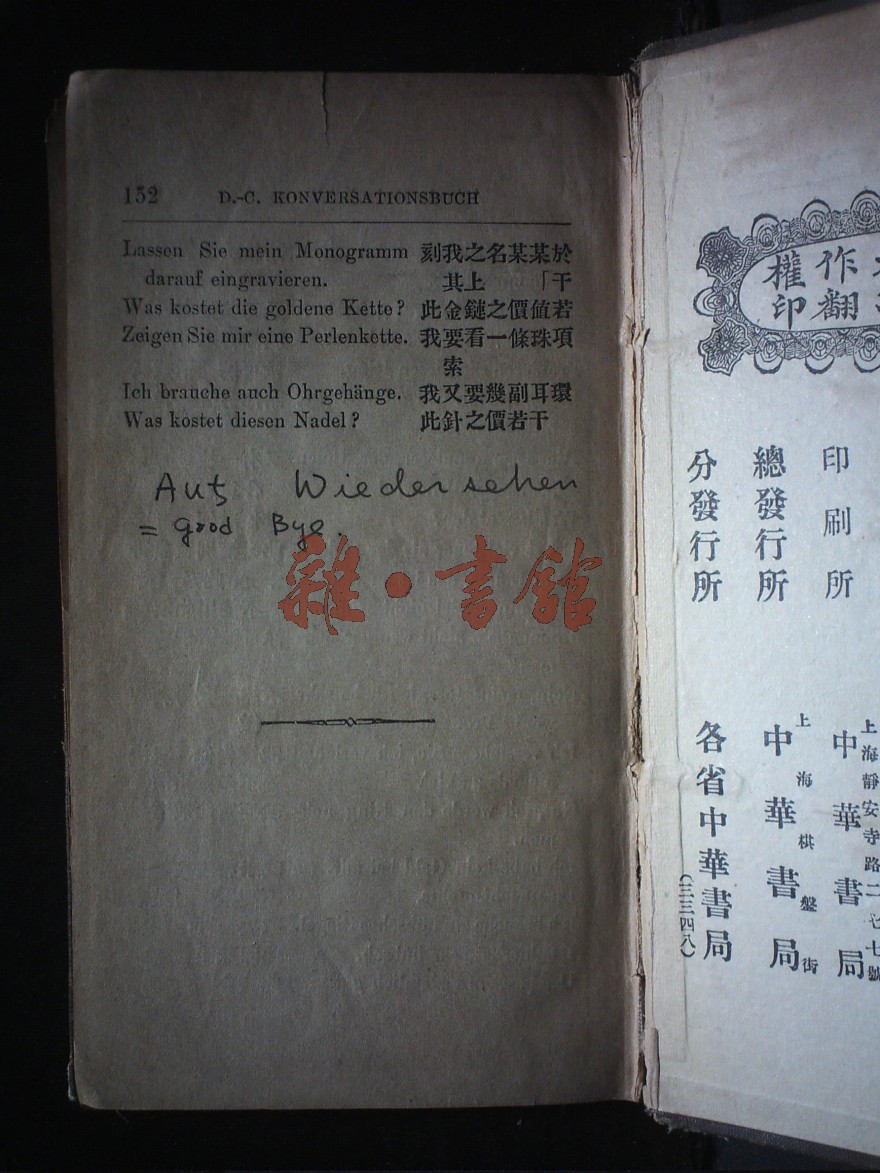 152 D.-C. KONVERSATIONSBUCH
Lassen Sie mein Monogramm 刻我之名某某於
darauf eingravieren. 其上 「干
Was kostet die goldene Kette? 此金鏈之價値若
Zeigen Sie mir eine Perlenkette. 我要看一條珠項
索
Ich brauche auch Ohrgehänge. 我又要幾副耳環
Was kostet diesen Nadel? 此針之價若干
Auf Wiedersehen
= Good Bye.
雜·書館
作翻
權印
印刷所
上海靜安寺路二七七號
中華書局
總發行所
上海棋盤街
中華書局
分發行所
各省中華書局
(三三四八)